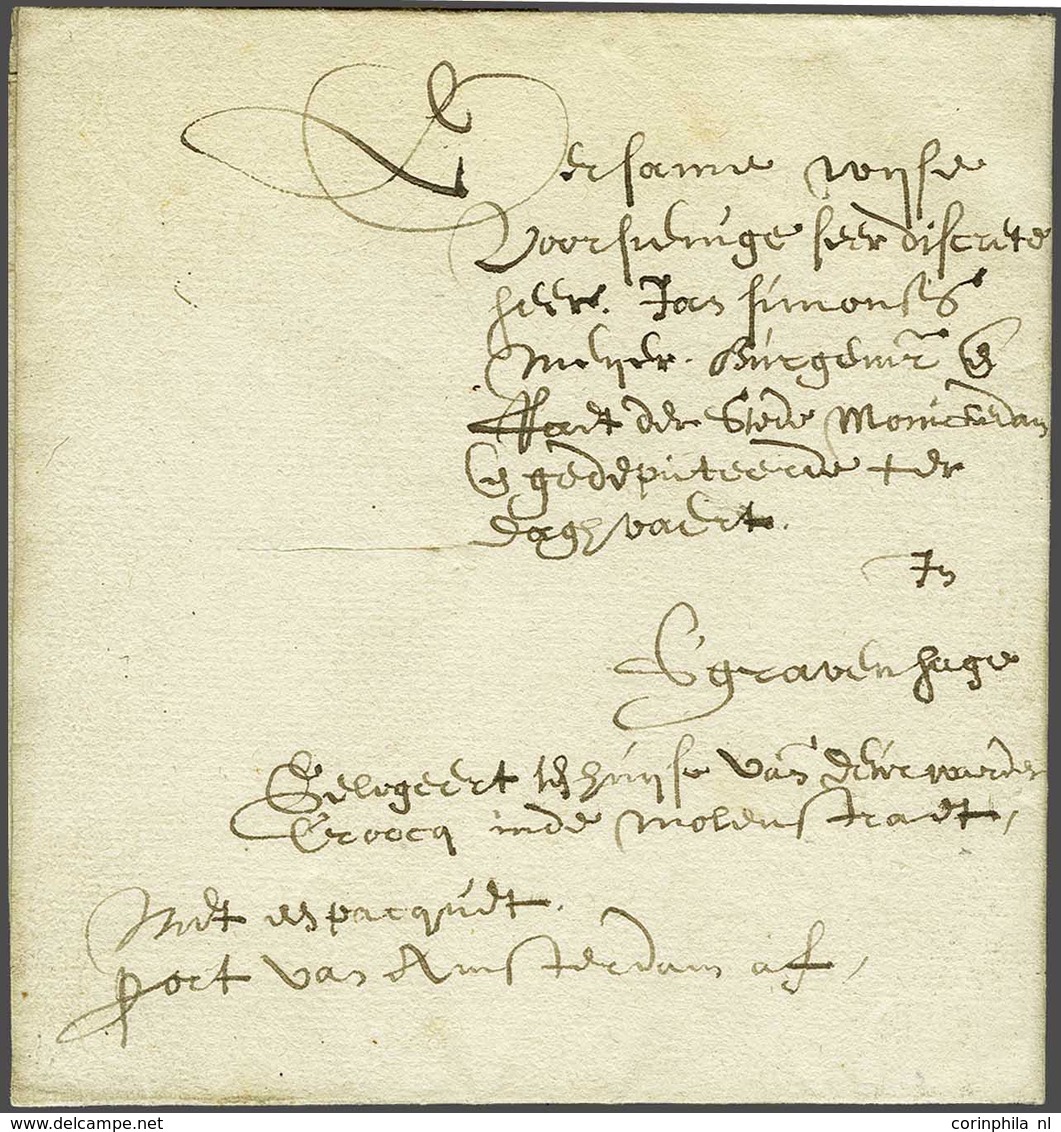 Eersame wijse
Voorsienige seer discrete
heer. Jan Simonss
Meijer. Burgemr. en
Raedt der Stede Monickendam
en gedeputeerde ter
daghvaert.
In
S'gravenhage
Gelogeert ten huijse van deurwaerder
Croocq inde molenstraet,
Met een pacquet.
port van Amsterdam af,
www.delcampe.net
corinphila nl